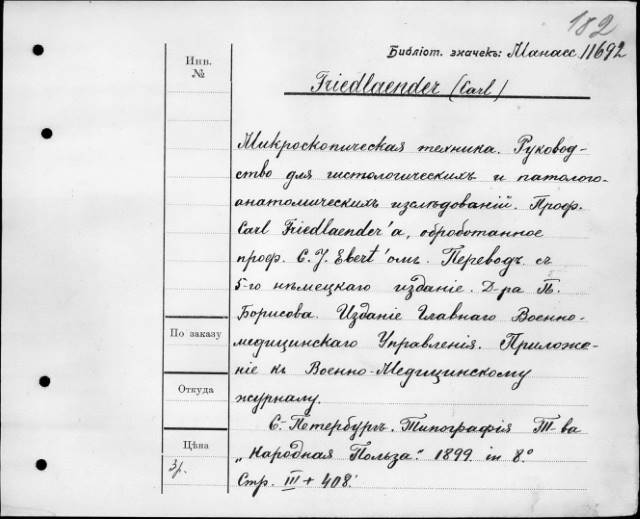 182
Библіот. значекъ: Манасс. 11692
Инв.
№
Friedlaender (Carl)
Микроскопическая техника. Руковод-
ство для гистологическихъ и патолого-
анатомическихъ изслѣдованій. Проф.
Carl Friedlaender'а, оброботанное
проф. C. J. Ebert'омъ. Переводъ съ
5-го нѣмецкаго изданіе. Д-ра П.
Борисова. Изданіе Главнаго Военно-
медицинскаго Управленія. Приложе-
По заказу
ніе къ Военно-Медицинскому
Откуда
журналу.
С-Петербургъ. Типографія Т-ва
Цѣна
„Народная Польза". 1899. in 8º
3р.
Стр. III + 408.